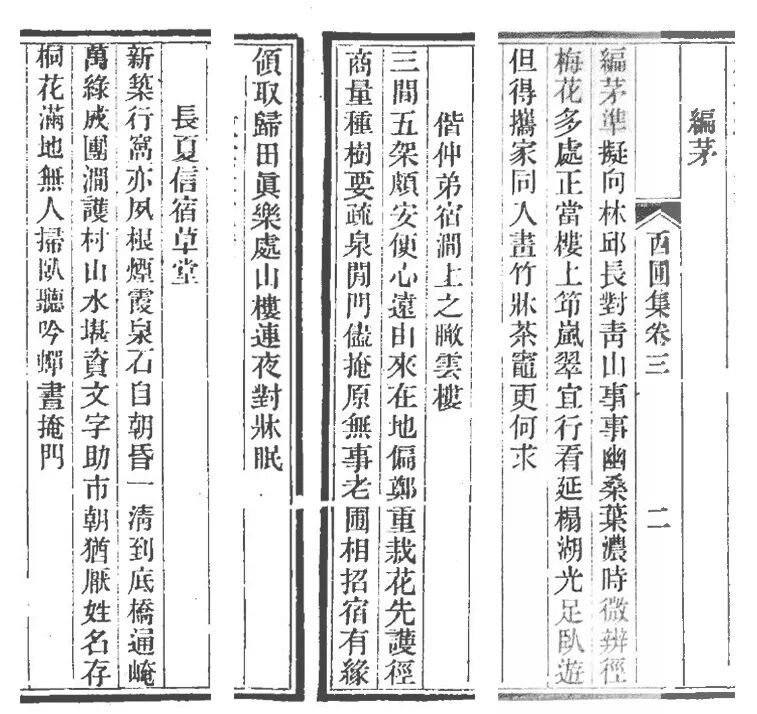 編茅
西圃集卷三 二
編茅準擬向林邱長對靑山事事幽桑葉濃時微辨徑
梅花多處正當樓上笻嵐翠宜行看延榻湖光足臥遊
但得攜家同人畫竹牀茶竈更何求
偕仲弟宿澗上之瞰雲樓
三間五架頗安便心遠由來在地偏鄭重栽花先護徑
商量種樹要疏泉閒門儘掩原無事老圃相招宿有緣
領取歸田眞樂處山樓連夜對牀眠
長夏信宿草堂
新築行窩亦夙根煙霞泉石自朝昏一清到底橋通崦
萬綠成團澗護村山水堪資文字助市朝猶厭姓名存
桐花滿地無人掃臥聽吟蟬晝掩門